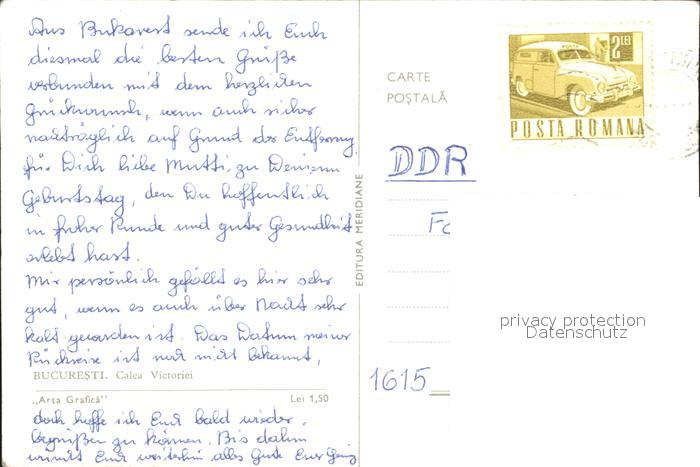 Aus Bukarest sende ich Euch
diesmal die besten Grüße
verbunden mit dem herzlichen
Glückwunsch, wenn auch sicher
nachträglich auf Grund der Entfernung
für Dich liebe Mutti, zu Deinem
Geburtstag, den Du hoffentlich
in froher Runde und guter Gesundheit
erlebt hast.
Mir persönlich gefällt es hier sehr
gut, wenn es auch über Nacht sehr
kalt geworden ist. Das Datum meiner
Rückreise ist noch nicht bekannt,
BUCUREŞTI. Calea Victoriei
„Arta Grafică" Lei 1,50
doch hoffe ich Euch bald wieder
begrüßen zu können. Bis dahin
wünscht Euch weiterhin alles Gute Euer
EDITURA MERIDIANE
CARTE
POŞTALĂ
2 LEI
POSTA ROMANA
DDR
privacy protection
Datenschutz
1615